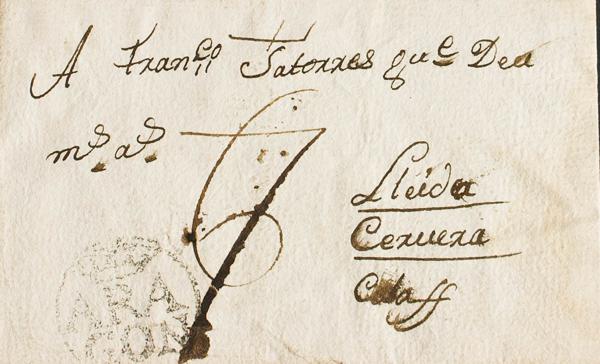 A Fran.co Satorres que Deu
m.s a.s
Lleida
Cervera
Calaff
ARA
GON